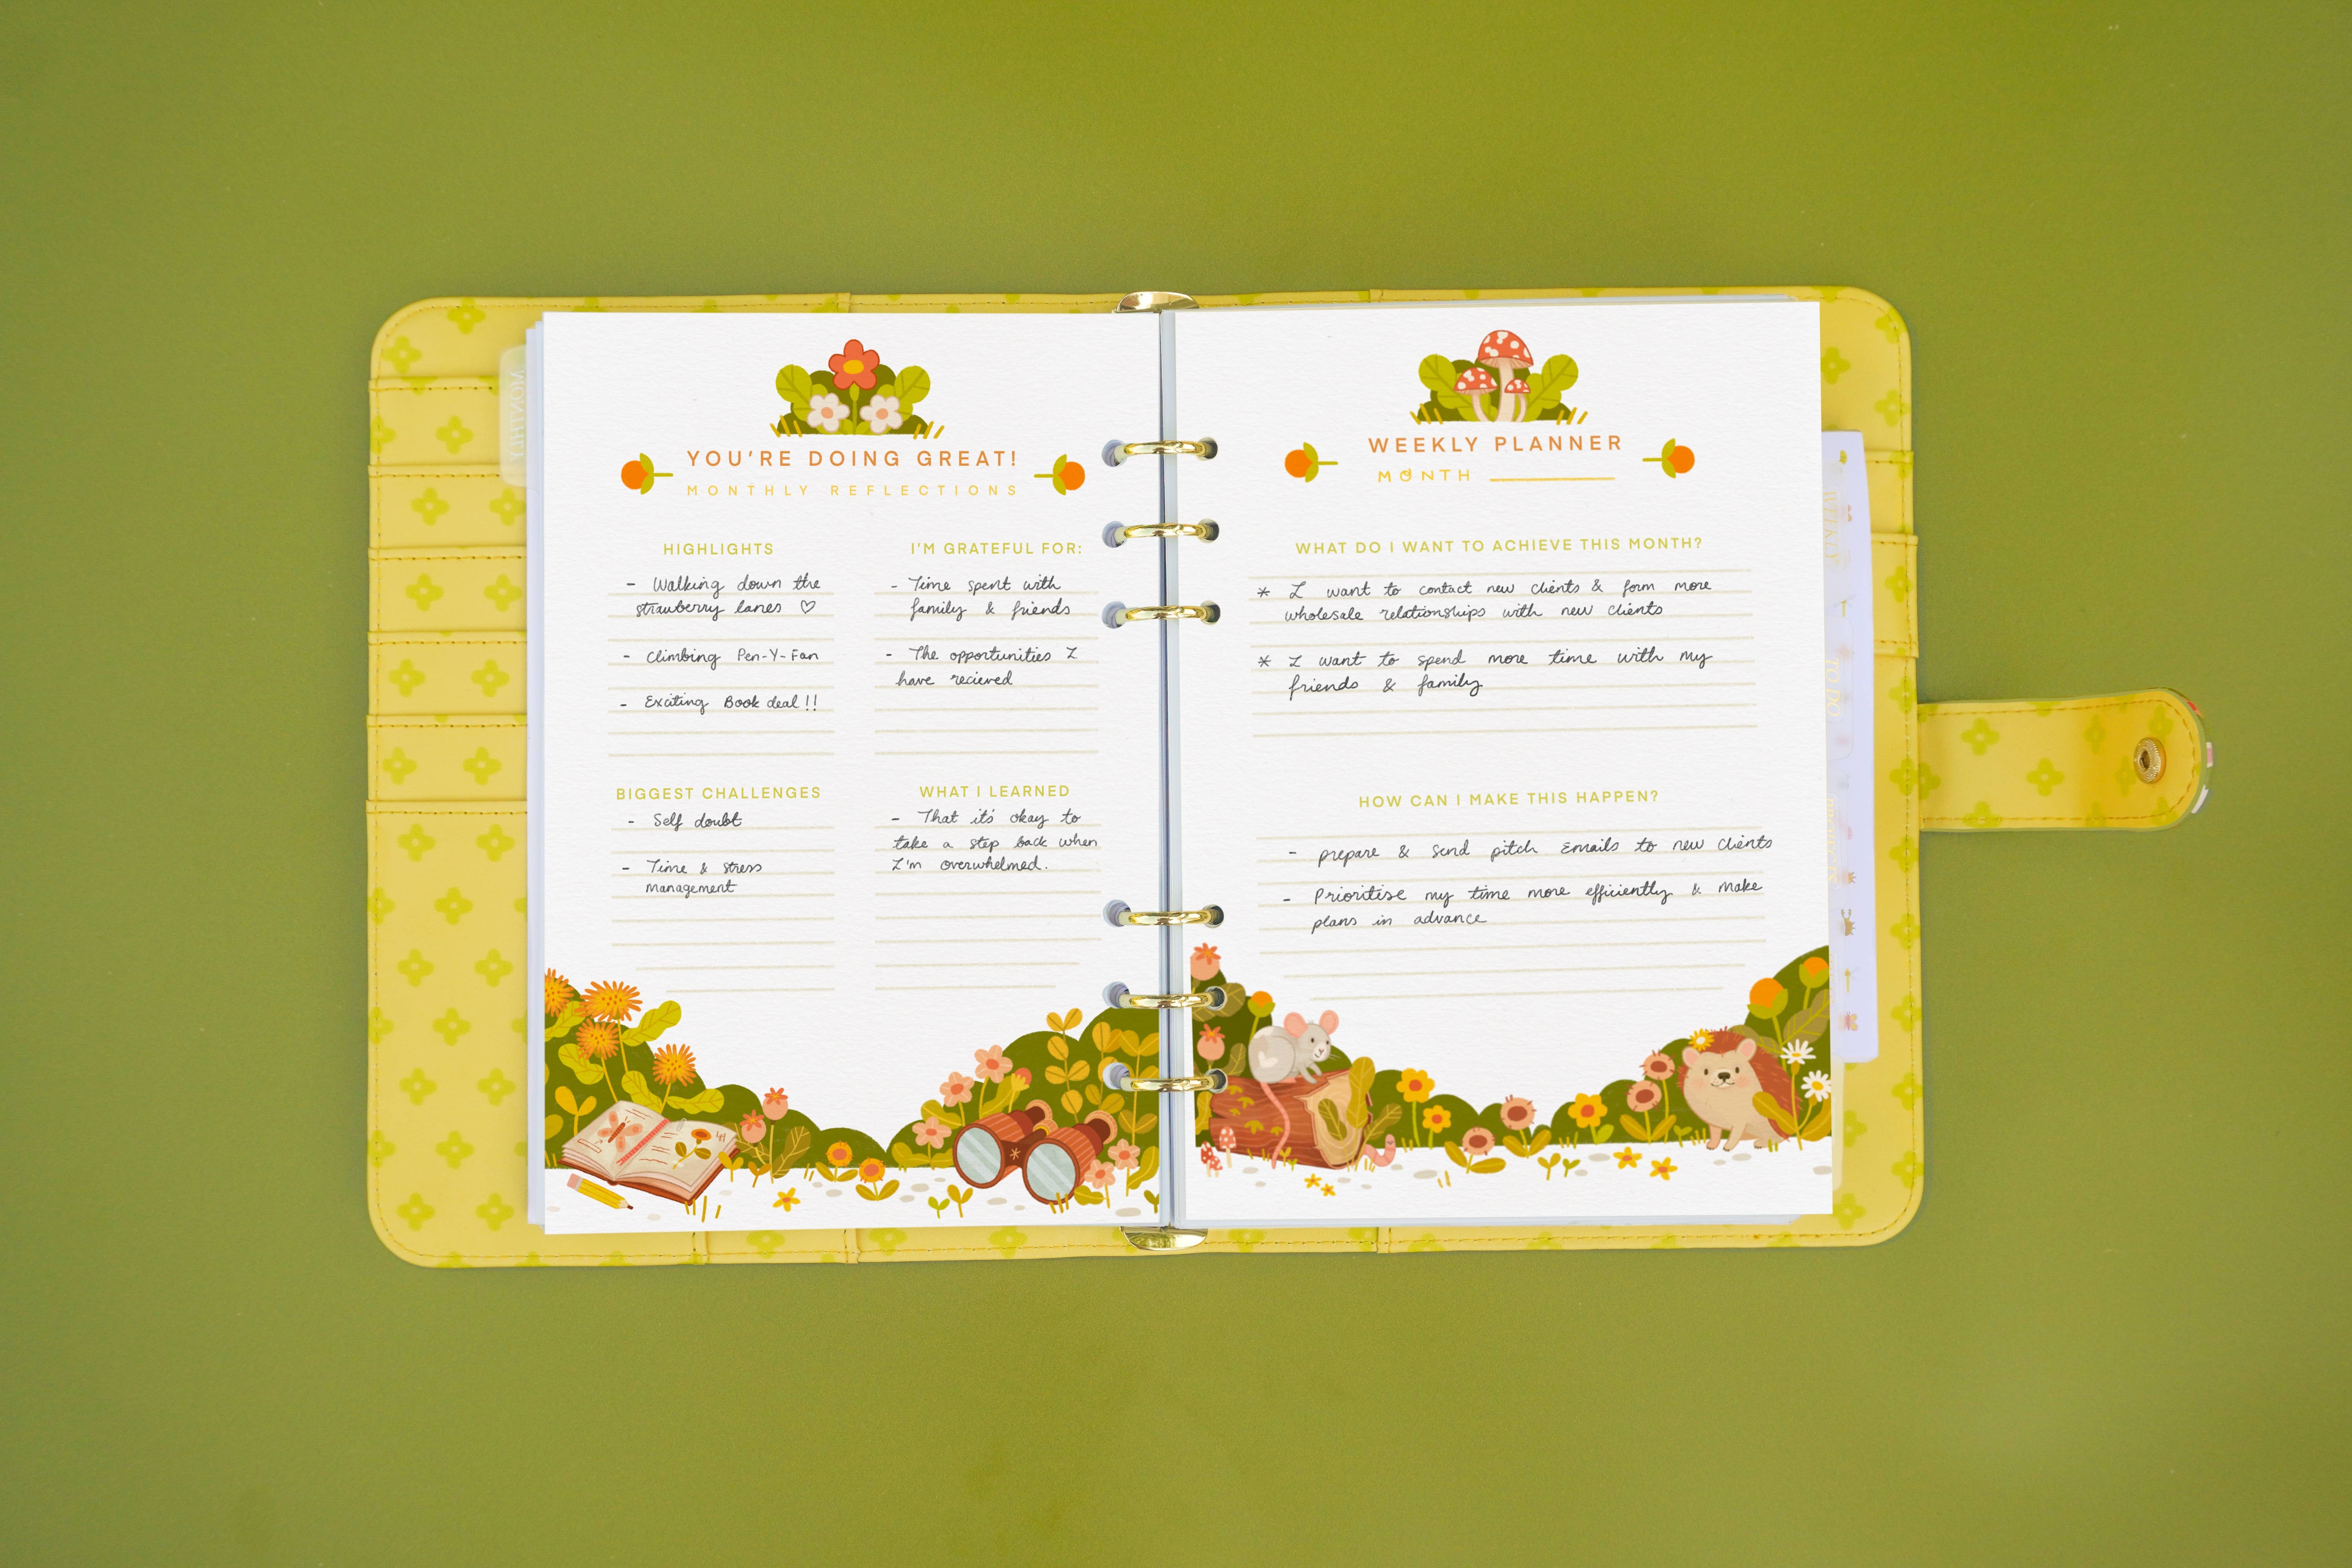 MONTHLY
YOU'RE DOING GREAT!
MONTHLY REFLECTIONS
HIGHLIGHTS
- Walking down the
strawberry lanes ♡
- Climbing Pen-Y-Fan
- Exciting Book deal!!
I'M GRATEFUL FOR:
- Time spent with
family & friends
- The opportunities I
have recieved
BIGGEST CHALLENGES
- Self doubt
- Time & stress
management
WHAT I LEARNED
- That it's okay to
take a step back when
I'm overwhelmed.
WEEKLY PLANNER
MONTH
WHAT DO I WANT TO ACHIEVE THIS MONTH?
* I want to contact new clients & form more
wholesale relationships with new clients
* I want to spend more time with my
friends & family
HOW CAN I MAKE THIS HAPPEN?
- prepare & send pitch emails to new clients
- Prioritise my time more efficiently & make
plans in advance
WEEKLY
TO DO